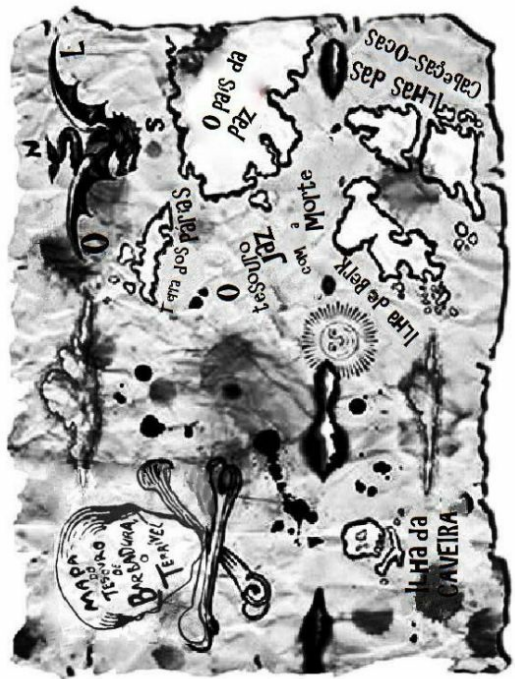 N
L
S
O
O país da
paz
ILHAS DAS
Cabeças-Ocas
Terra dos Párias
O
tesouro
JAZ
com a
Morte
Ilha de Berk
MAPA
DO
TESOURO
DE
BARBADURA
O
TERRÍVEL
ILHA da
CAVEIRA